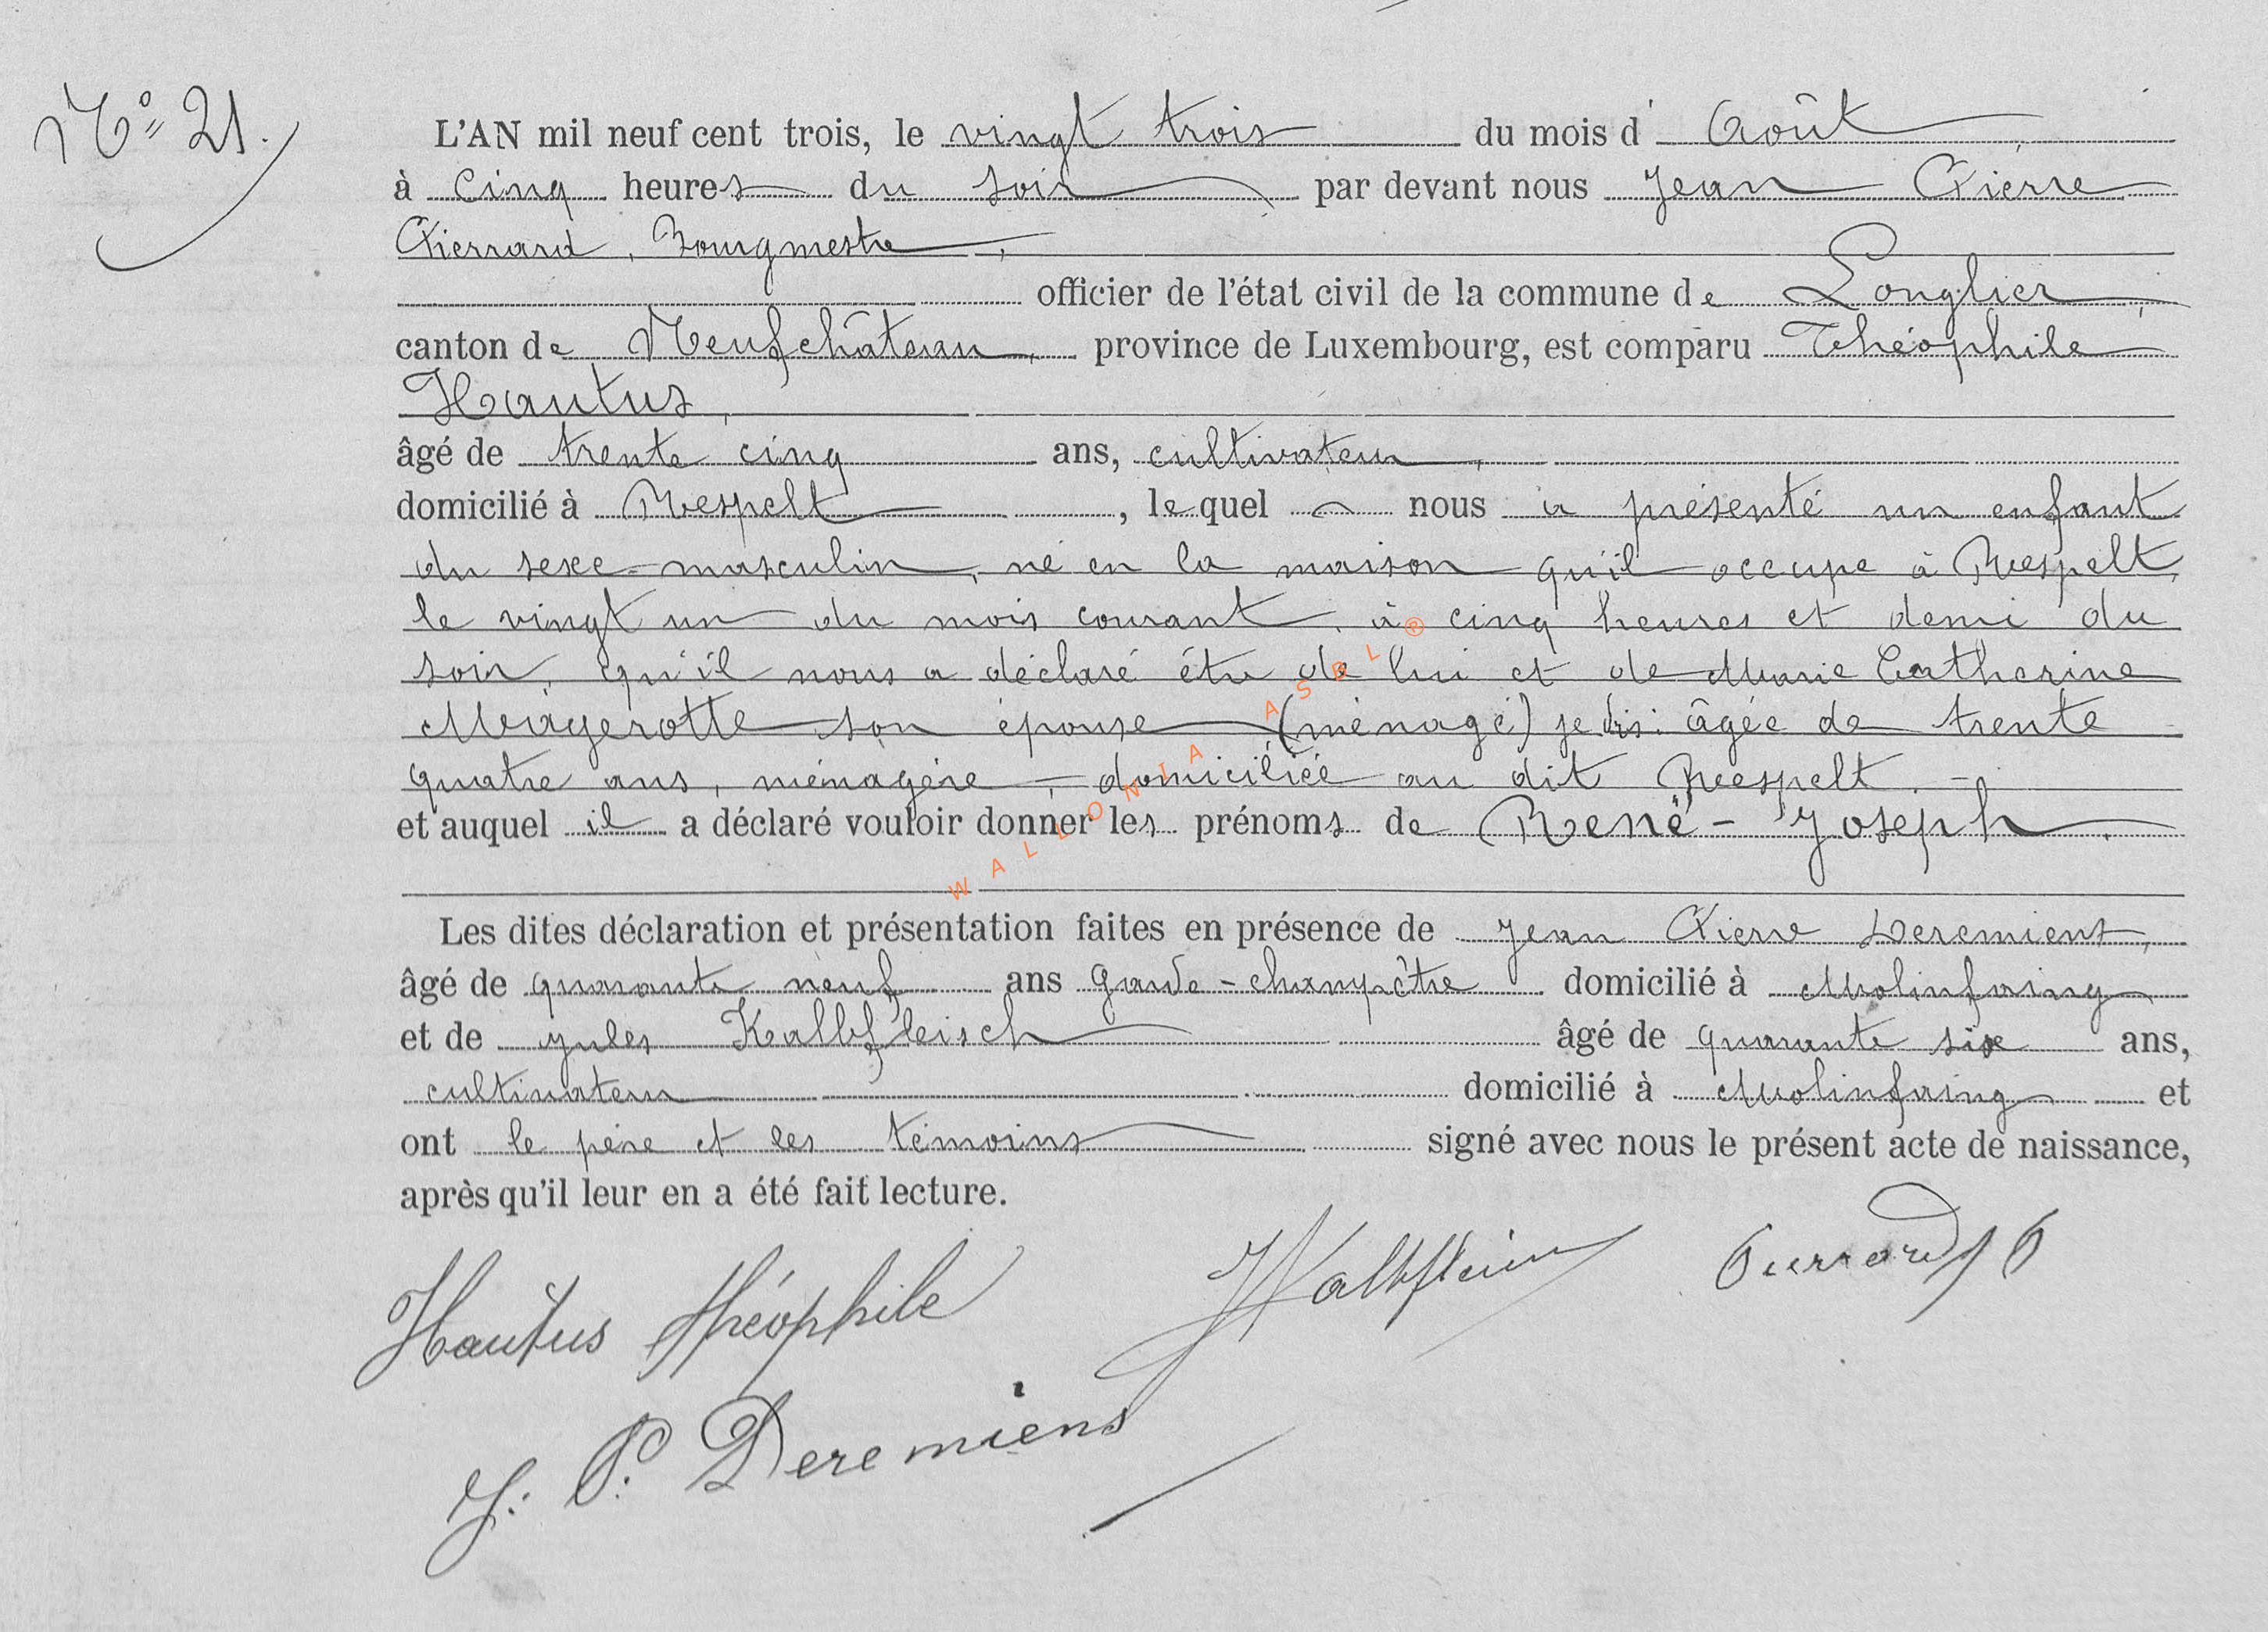 N° 21.
L'AN mil neuf cent trois, le vingt trois du mois d' Août
à cinq heures du soir par devant nous Jean Pierre
Pierrard, Bourgmestre,
officier de l'état civil de la commune de Longlier,
canton de Neufchâteau, province de Luxembourg, est comparu Théophile
Hautus,
âgé de trente cinq ans, cultivateur,
domicilié à Respelt, lequel nous a présenté un enfant
du sexe masculin, né en la maison qu'il occupe à Respelt,
le vingt un du mois courant, à cinq heures et demi du
soir, qu'il nous a déclaré être de lui et de Marie Catherine
Magerotte son épouse (ménagé) je dis: âgée de trente
quatre ans, ménagère, domiciliée au dit Respelt. -
et auquel il a déclaré vouloir donner les prénoms de René - Joseph.
WALLONIA ASBL ®
Les dites déclaration et présentation faites en présence de Jean Pierre Deremiens,
âgé de quarante neuf ans garde-champêtre domicilié à Molinfaing
et de Jules Kalbfleisch âgé de quarante six ans,
cultivateur domicilié à Molinfaing et
ont le père et les témoins signé avec nous le présent acte de naissance,
après qu'il leur en a été fait lecture.
Hautus Théophile JKalbfleisch Pierrard J P
J. P. Deremiens